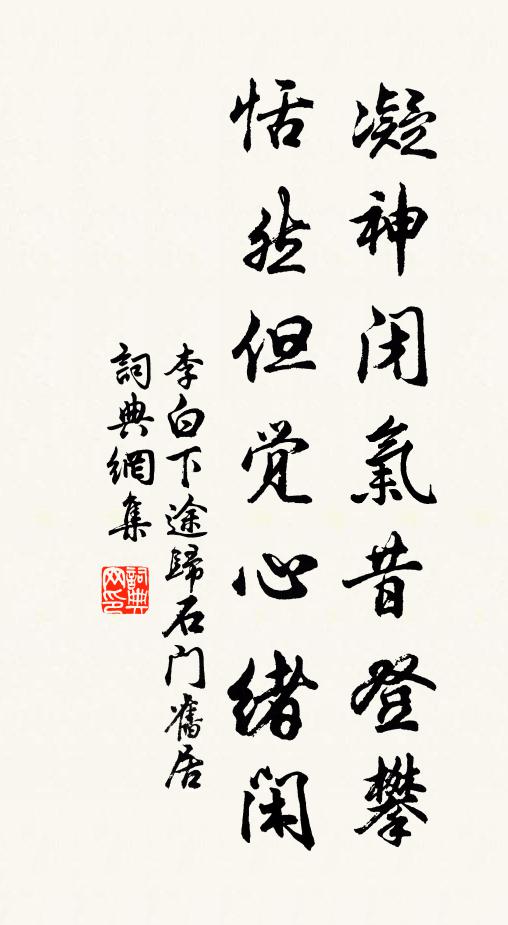 凝神闭氣昔登攀
恬然但覚心緒闲
李白下途歸石门舊居
詞典網集
詞典网印